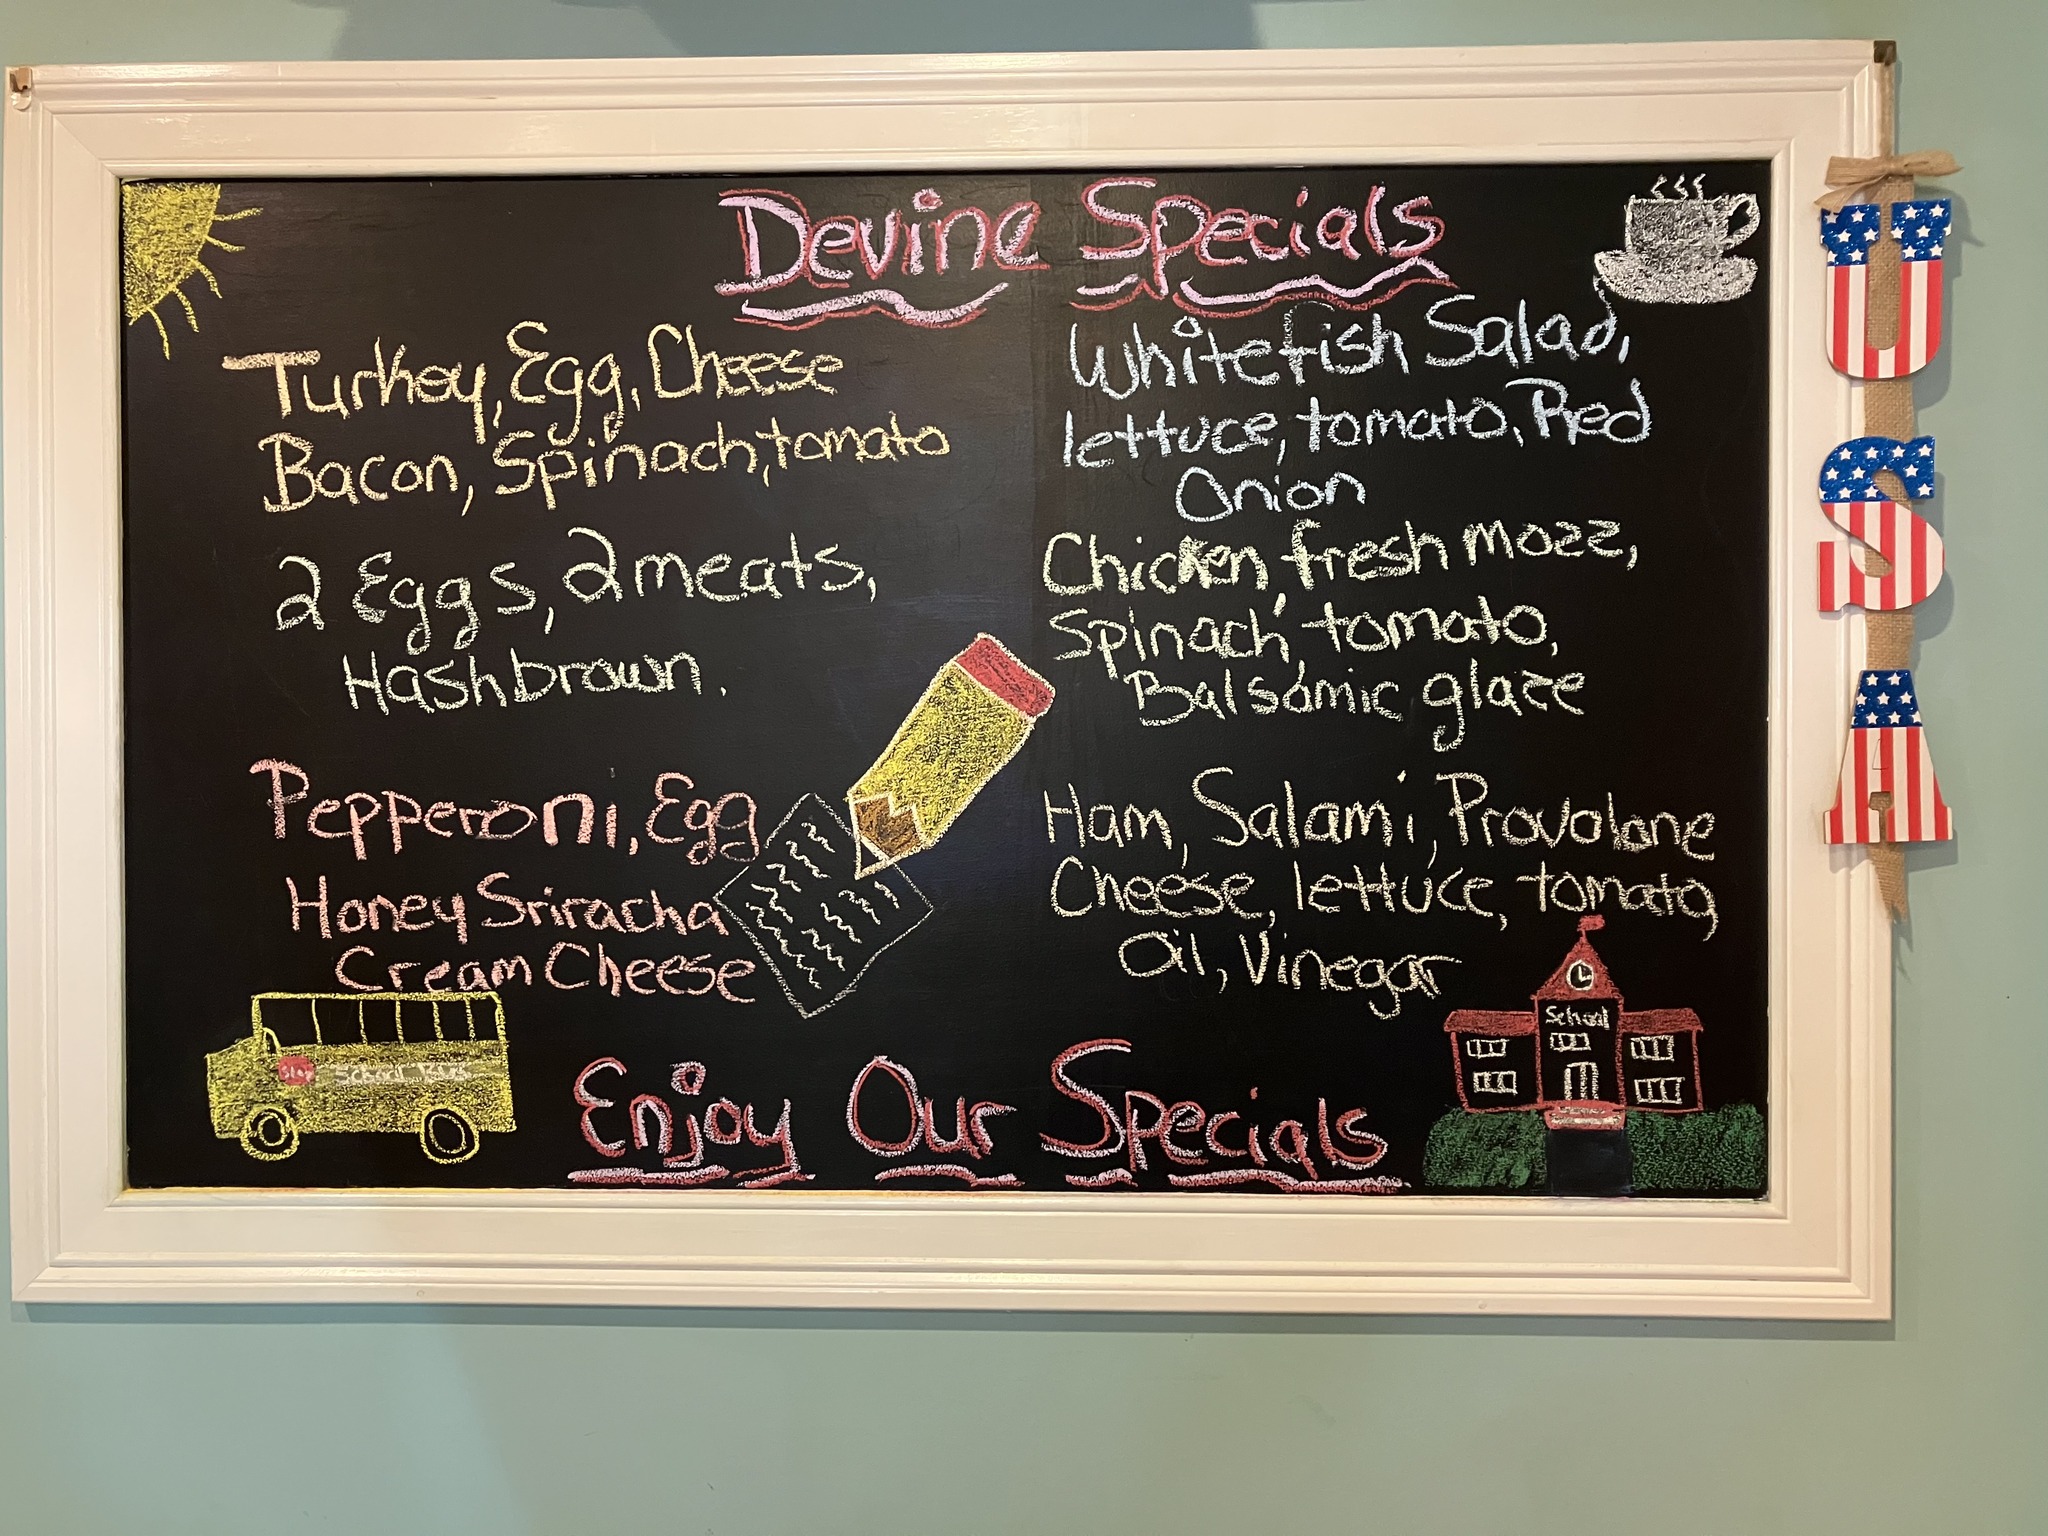 Devine Specials
Turkey, Egg, Cheese
Bacon, Spinach, tomato
2 Eggs, 2 meats,
Hashbrown.
Pepperoni, Egg
Honey Sriracha
Cream Cheese
Whitefish Salad,
lettuce, tomato, Red
Onion
Chicken, fresh mozz,
Spinach, tomato,
Balsamic glaze
Ham, Salami, Provolone
Cheese, lettuce, tomato,
Oil, Vinegar
Stop
School Bus
School
Enjoy Our Specials
USA